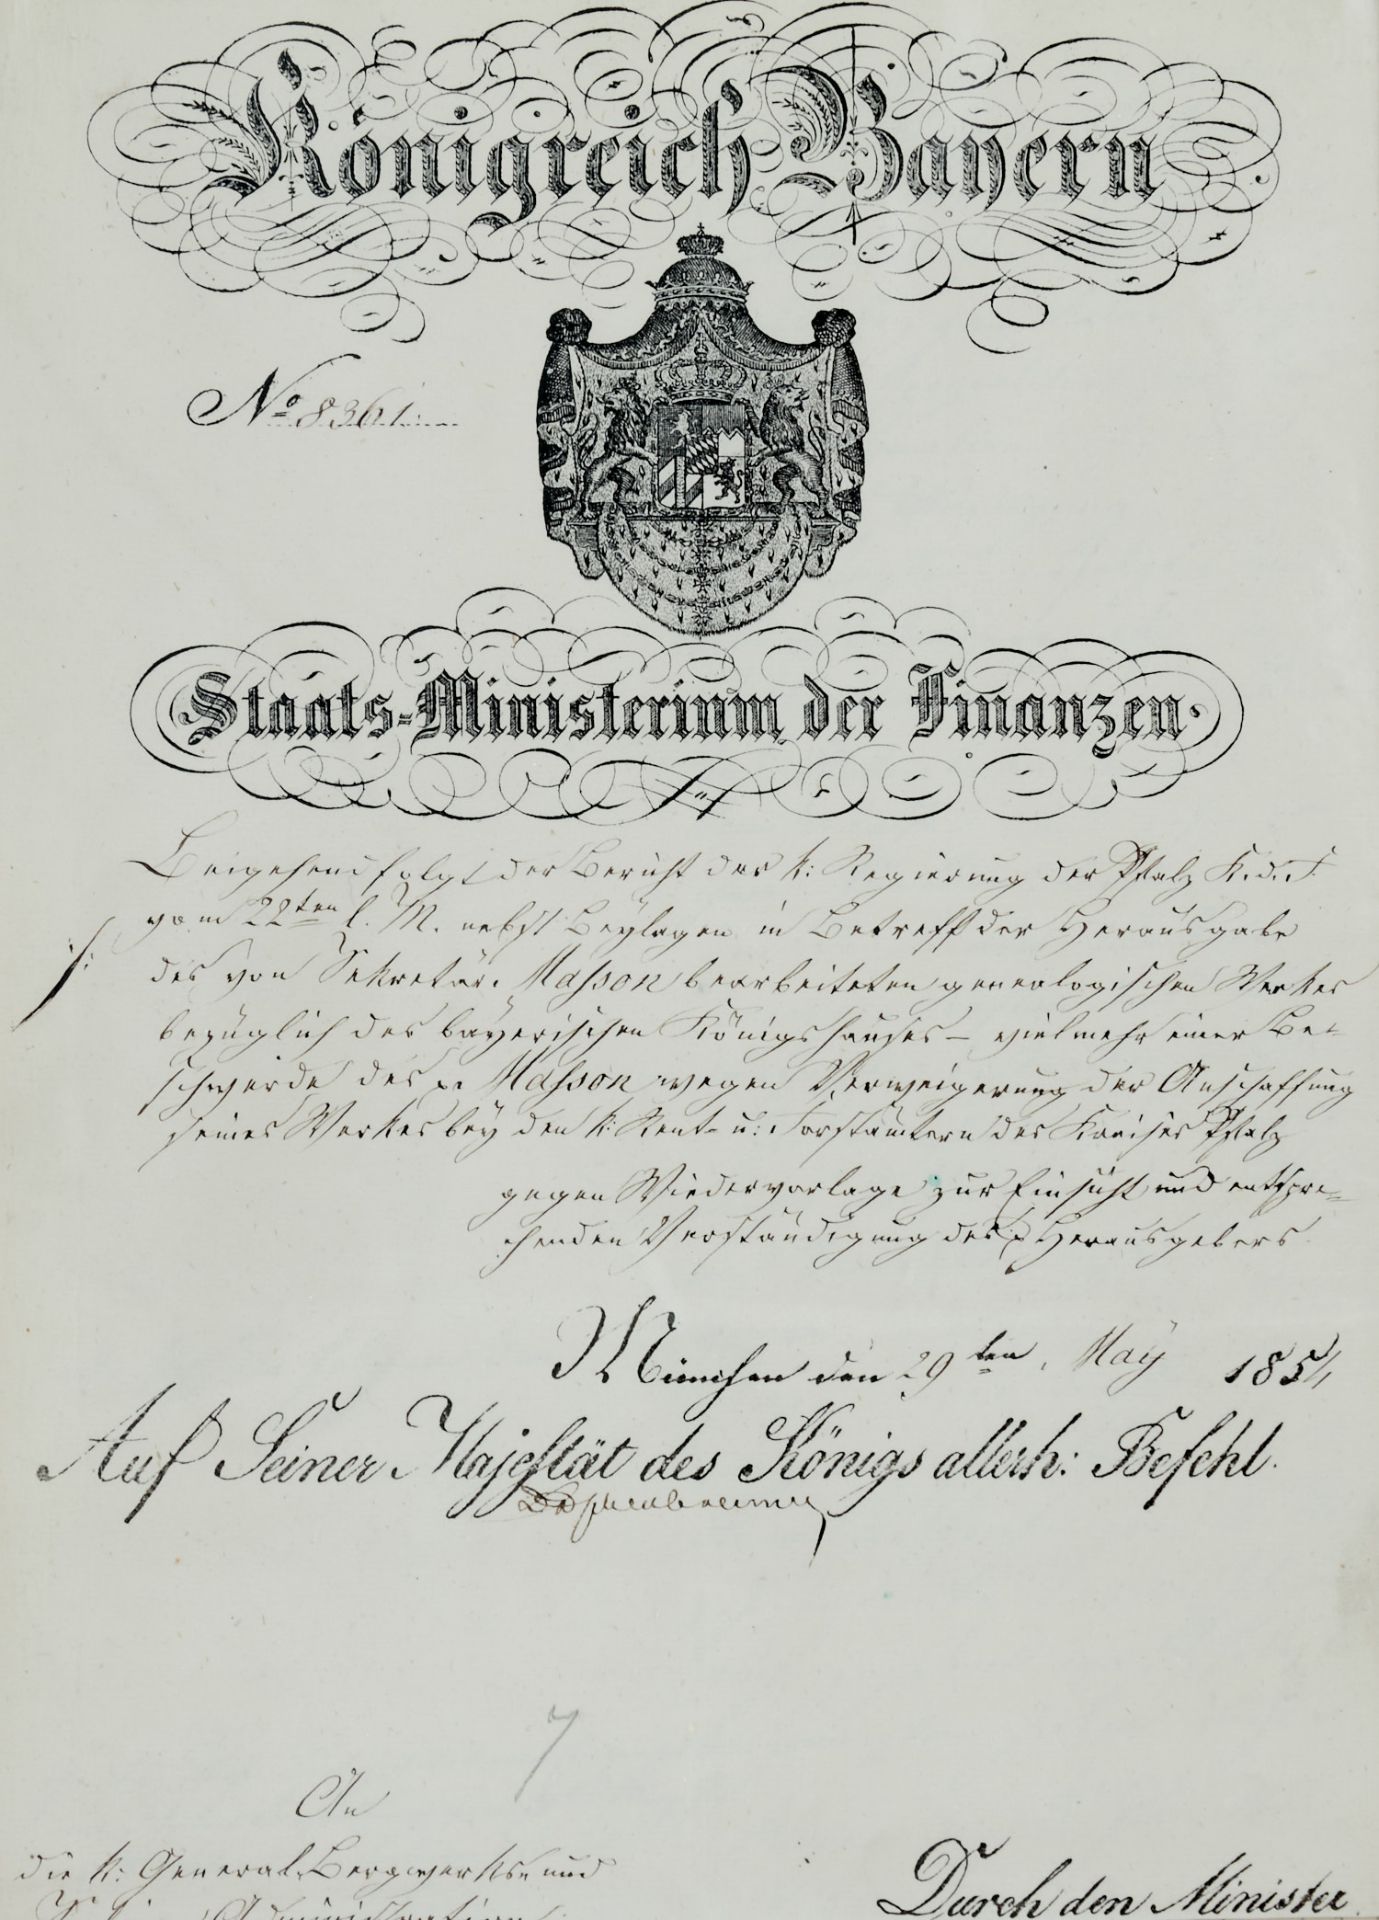 Königreich Bayern
No 8361.
Staats-Ministerium der Finanzen.
Beigehend folgt der Bericht der k: Regierung der Pfalz K. d. F.
vom 22ten l. M. nebst Beylagen in Betreff der Herausgabe
des von Sekretär Masson bearbeiteten genealogischen Werkes
bezüglich des bayerischen Königshauses – vielmehr einer Be-
schwerde des p. Masson wegen Verweigerung der Anschaffung
seines Werkes bey den k: Rent- u: Forstämtern des Kreises Pfalz
gegen Wiedervorlage zur Einsicht und entspre-
chenden Verständigung des p Herausgebers.
München den 29ten May 1854
Auf Seiner Majestät des Königs allerh: Befehl.
7
An
die k: General Bergwerks- und
Administration
Durch den Minister